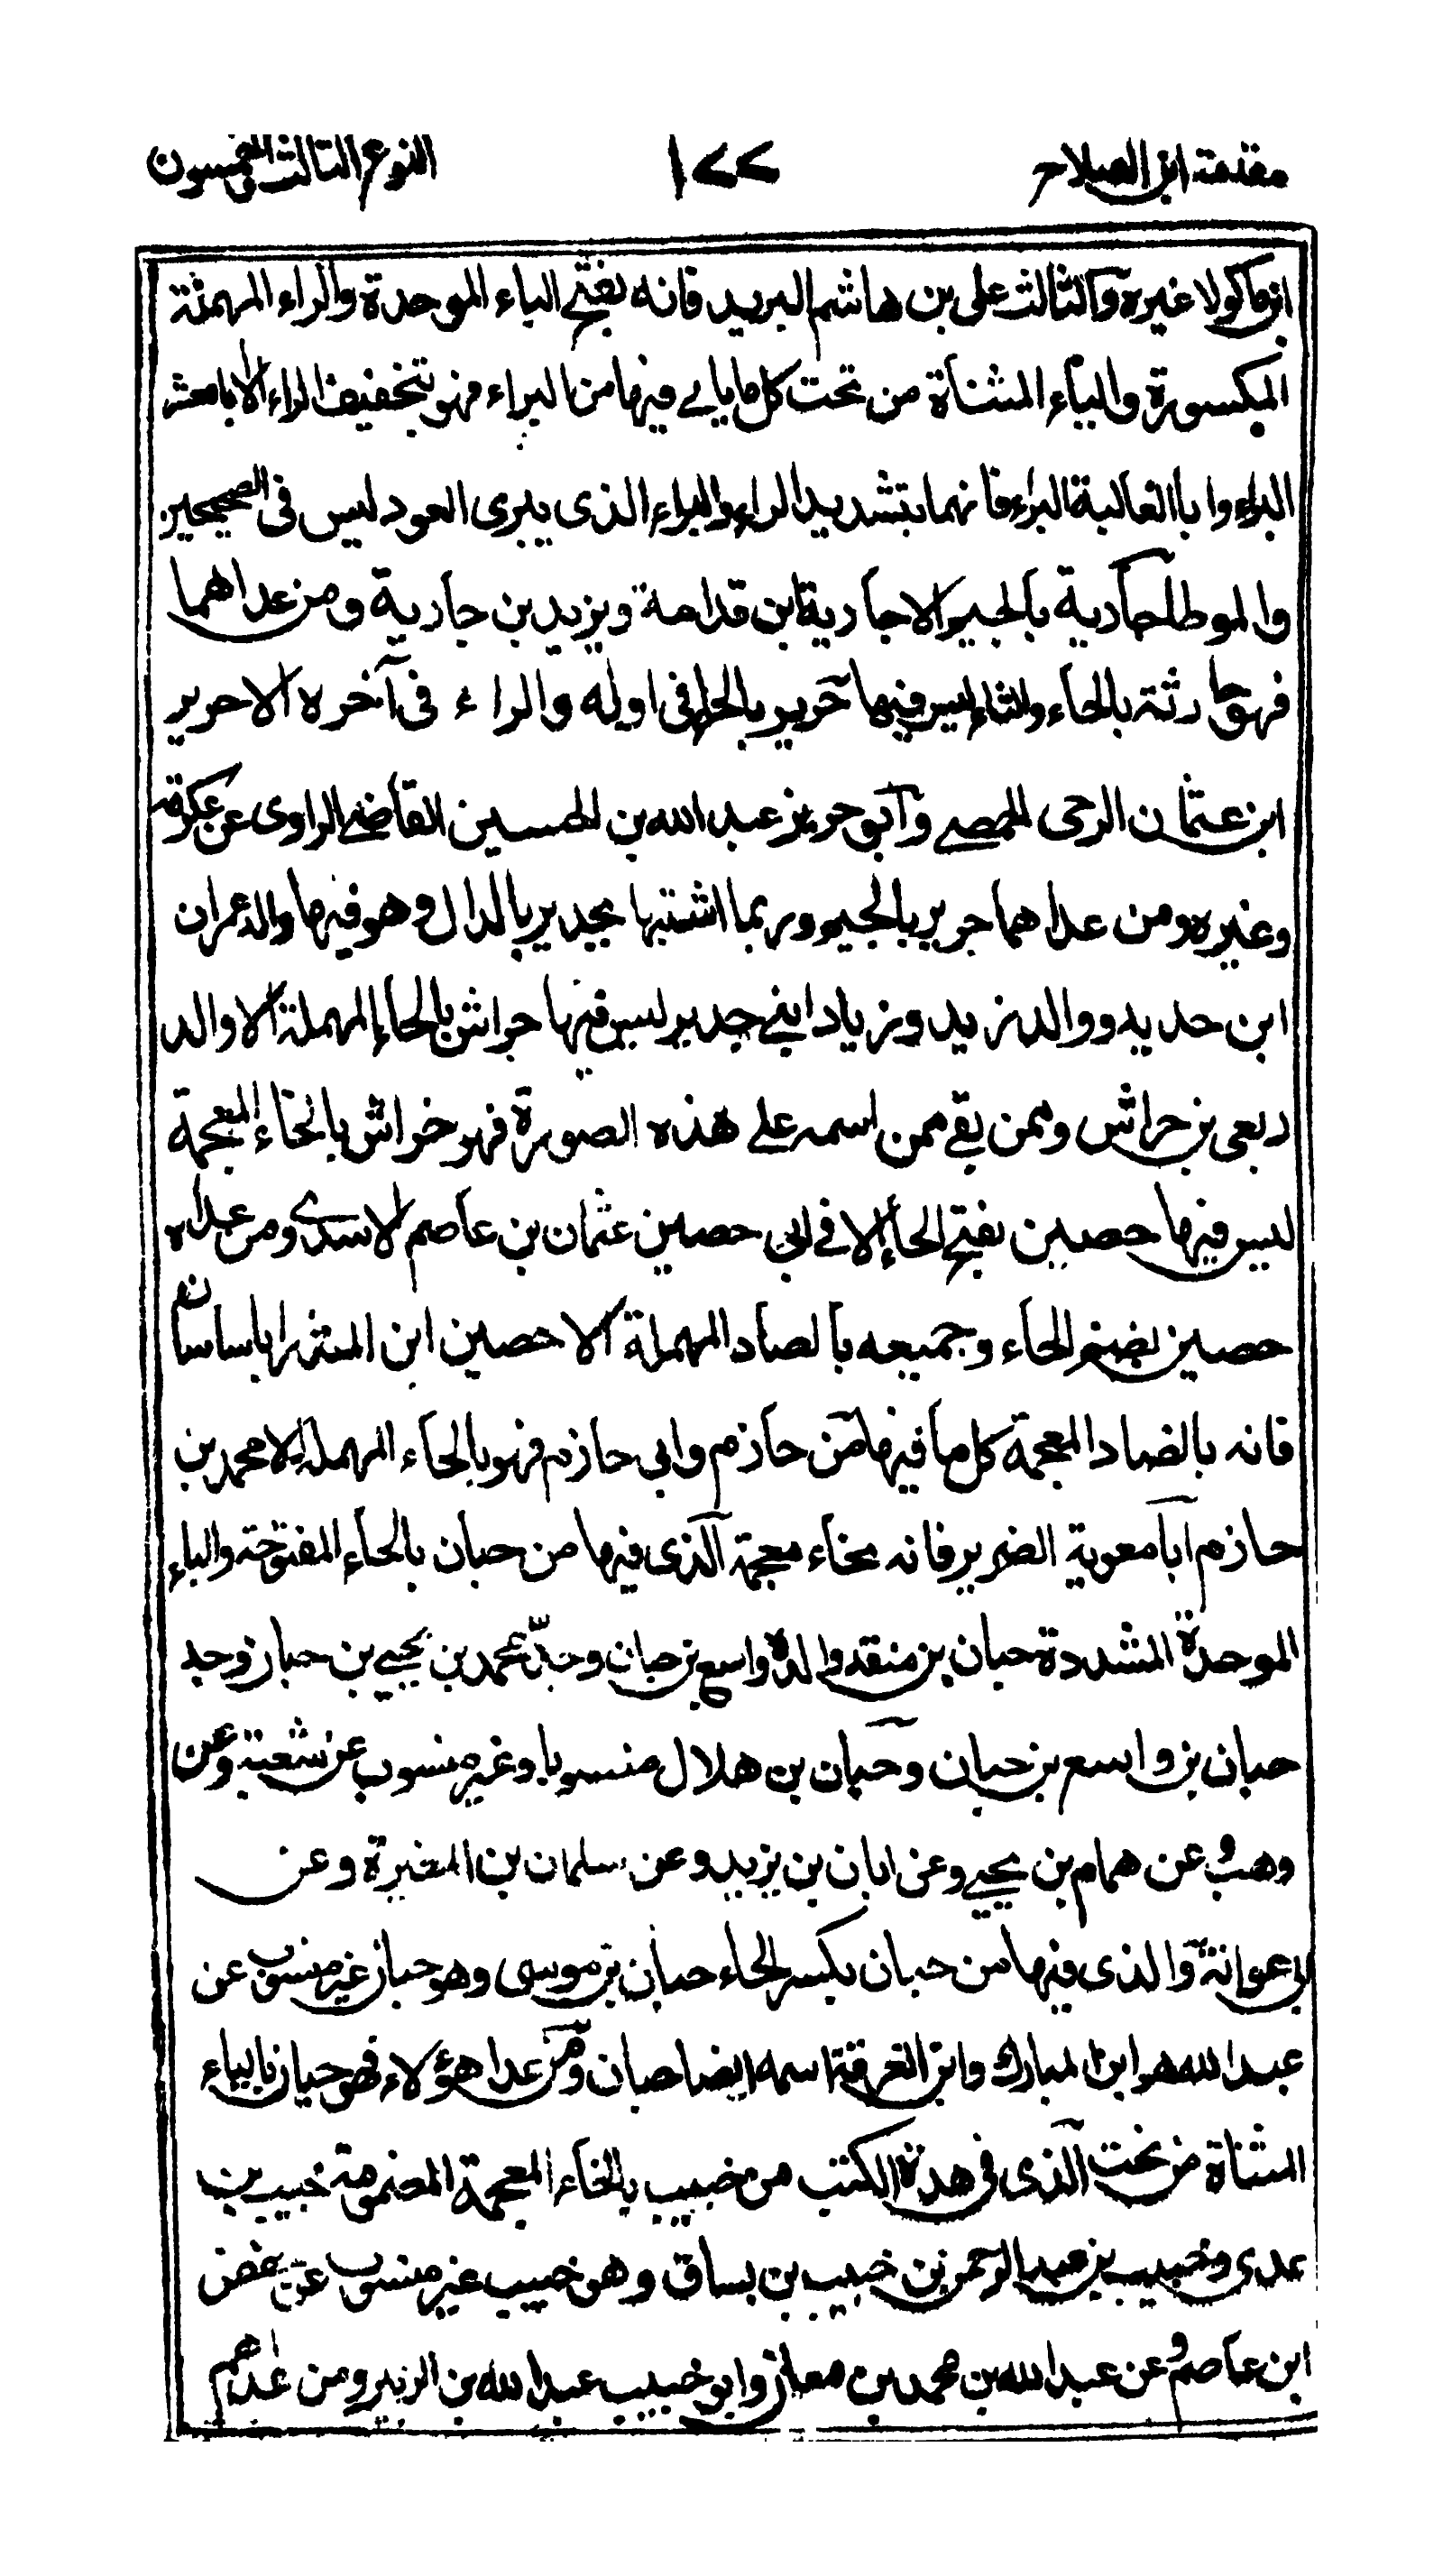 مقدمة ابن الصلاح ١٧٧ النوع الثالث الخمسون
ابن ماكولا غيره والثالث على بن هاشم البريد فانه بفتح الباء الموحدة والراء المهملة
المكسورة والياء المثناة من تحت كل ما ياتى فيها من البراء فهو بتخفيف الراء الا ابا معشر
البراء وابا العالية البراء فانهما بتشديد الراء والبراء الذى يبرى العود ليس فى الصحيحين
والموطا جارية بالجيم الا جارية ابن قدامة ويزيد بن جارية ومن عداهما
فهو حارثة بالحاء والثاء ليس فيها حريز بالحاء فى اوله والزاء فى آخره الا حريز
ابن عثمان الرحبى الحمصى وابو حريز عبد الله بن الحسين القاضى الراوى عن عكرمة
وغيره ومن عداهما جرير بالجيم وربما اشتبها بحدير بالدال وهو فيها والد عمران
ابن حدير ووالد زيد وزياد ابنى حدير ليس فيها حراش بالحاء المهملة الا والد
ربعى بن حراش ومن بقى ممن اسمه على هذه الصورة فهو خراش بالخاء المعجمة
ليس فيها حصين بفتح الحاء الا فى ابى حصين عثمان بن عاصم الاسدى ومن عداه
حصين بضم الحاء وجميعه بالصاد المهملة الا حصين ابن المنذر ابا ساسان
فانه بالضاد المعجمة كل ما فيها من حازم وابى حازم فهو بالحاء المهملة الا محمد بن
حازم ابا معوية الضرير فانه بخاء معجمة الذى فيها من حبان بالحاء المفتوحة والباء
الموحدة المشددة حبان بن منقذ والده واسع بن حبان وجد محمد بن يحيى بن حبان وجد
حبان بن واسع بن حبان وحبان بن هلال منسوبا وغير منسوب عن شعبة وعن
وهب وعن همام بن يحيى وعن ابان بن يزيد وعن سليمان بن المغيرة وعن
ابى عوانة والذى فيها من حبان بكسر الحاء حبان بن موسى وهو حبان غير منسوب عن
عبد الله هو ابن المبارك وابن العرقة اسمه ايضا حبان ومن عدا هؤلاء فهو حيان بالياء
المثناة من تحت الذى فى هذه الكتب من خبيب بالخاء المعجمة المضمومة خبيب بن
عدى وخبيب بن عبد الرحمن بن خبيب بن يساف وهو خبيب غير منسوب عن حفص
ابن عاصم وعن عبد الله بن محمد بن معاذ وابو خبيب عبد الله بن الزبير ومن عداهم